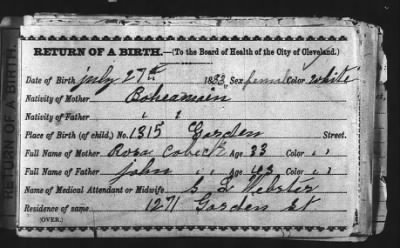 RETURN OF A BIRTH.—(To the Board of Health of the City of Cleveland.)
Date of Birth july 27th 1883, Sex female Color white
Nativity of Mother Boheamain
Nativity of Father " "
Place of Birth (of child,) No. 1315 Garden Street.
Full Name of Mother Rosa Cobeck Age 33 Color " "
Full Name of Father john " " Age Color " "
Name of Medical Attendant or Midwife S L Webster
Residence of same 1271 Garden St
(OVER.)
RETURN OF A BIRTH